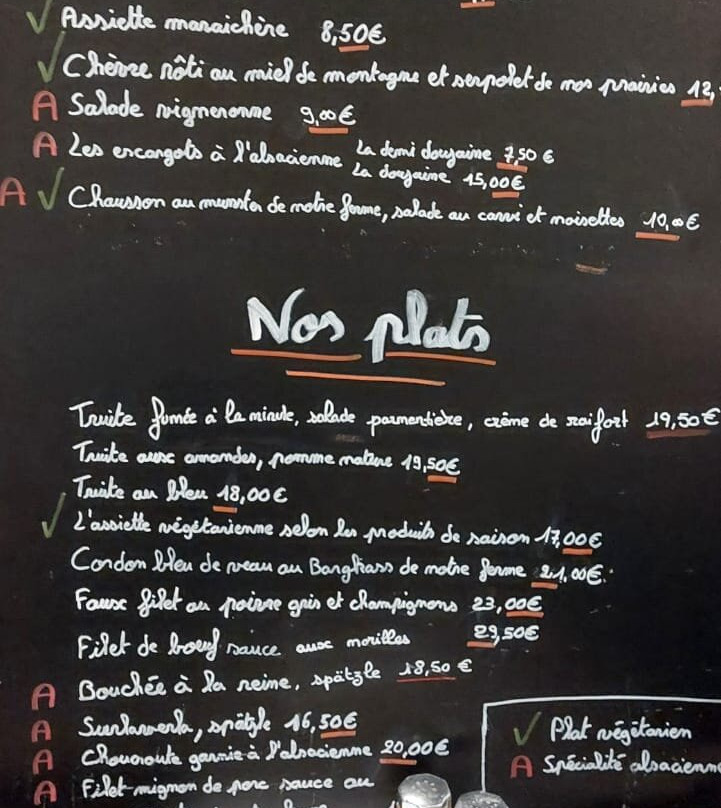 ✓ Assiette maraichère 8,50€
✓ Chèvre rôti au miel de montagne et serpolet de nos prairies 12,
A Salade vigneronne 9,00€
A Les escargots à l'alsacienne La demi douzaine 7,50 €
La douzaine 15,00€
A ✓ Chausson au munster de notre ferme, salade au carvi et noisettes 10,00€
Nos plats
Truite fumée à la minute, salade parmentière, crème de raifort 19,50€
Truite aux amandes, pomme nature 19,50€
Truite au bleu 18,00€
✓ L'assiette végétarienne selon les produits de saison 17,00€
Cordon bleu de veau au Bargkass de notre ferme 21,00€
Faux filet au poivre gris et champignons 23,00€
Filet de boeuf sauce aux morilles 29,50€
A Bouchée à la reine, spätzle 18,50 €
A Surlawerla, spätzle 16,50€
A Choucroute garnie à l'alsacienne 20,00€
A Filet-mignon de porc sauce au
✓ Plat végétarien
A Spécialité alsacienne